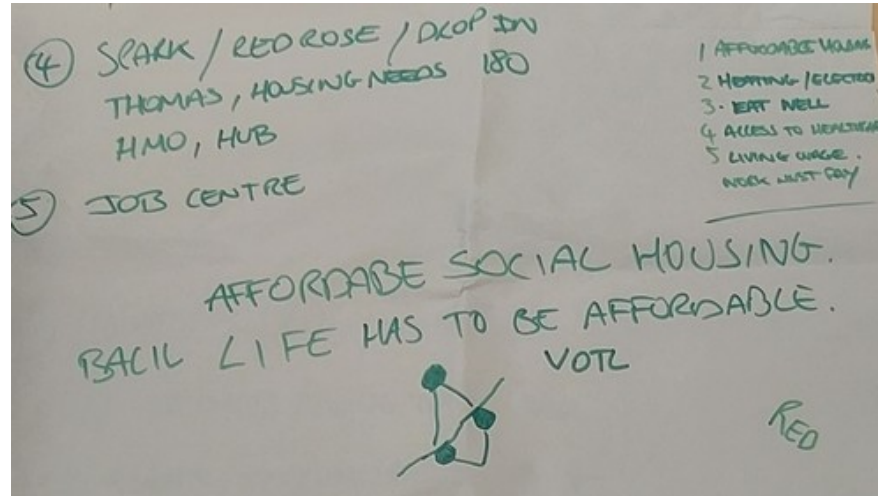 ④ SPARK / RED ROSE / DROP IN
THOMAS, HOUSING NEEDS 180
HMO, HUB
⑤ JOB CENTRE
1 AFFOODABLE HOUSING
2 HEATING / ELECTRO
3. EAT WELL
4 ACCESS TO HEALTHCAR
5 LIVING WAGE.
WORK MUST PAY
AFFORDABE SOCIAL HOUSING.
BACIL LIFE HAS TO BE AFFORDABLE.
VOTL
RED